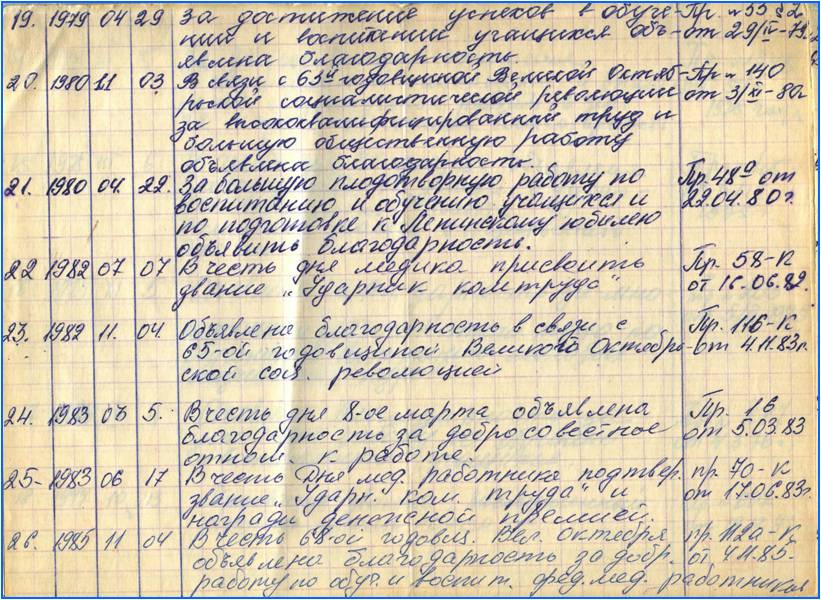 19. 1979 04 29 За достижение успехов в обуче- Пр. № 55 § 2
нии и воспитании учащихся объ- от 29/IV-79.
явлена благодарность.
20. 1980 11 03 В связи с 63й годовщиной Великой Октяб- Пр № 140
рьской социалистической революции от 3/XI-80г
за высококвалифицированный труд и
большую общественную работу
объявлена благодарность.
21. 1980 04. 22. За большую плодотворную работу по Пр. 48а от
воспитанию и обучению учащихся и 22.04.80г.
по подготовке к Ленинскому юбилею
объявить благодарность.
22 1982 07 07 В честь дня медика присвоить Пр. 58-К
звание „Ударник комтруда" от 16.06.82.
23. 1982 11. 04. Объявлена благодарность в связи с Пр. 116-К
65-ой годовщиной Великого Октябрь- от 4.11.83г.
ской соц. революцией
24. 1983 03 5. В честь дня 8-ое марта объявлена Пр. 16
благодарность за добросовестное от 5.03.83
отнош. к работе.
25- 1983 06 17 В честь Дня мед. работника подтвер. пр. 70-К
звание „Ударн. ком. труда" и от 17.06.83г.
награди денежной премией.
26. 1985 11 04 В честь 68-ой годовщ. Вел. Октября пр. 112а-К
объявлена благодарность за добр. от 4.11.85.
работу по обуч. и воспит. сред. мед. работников